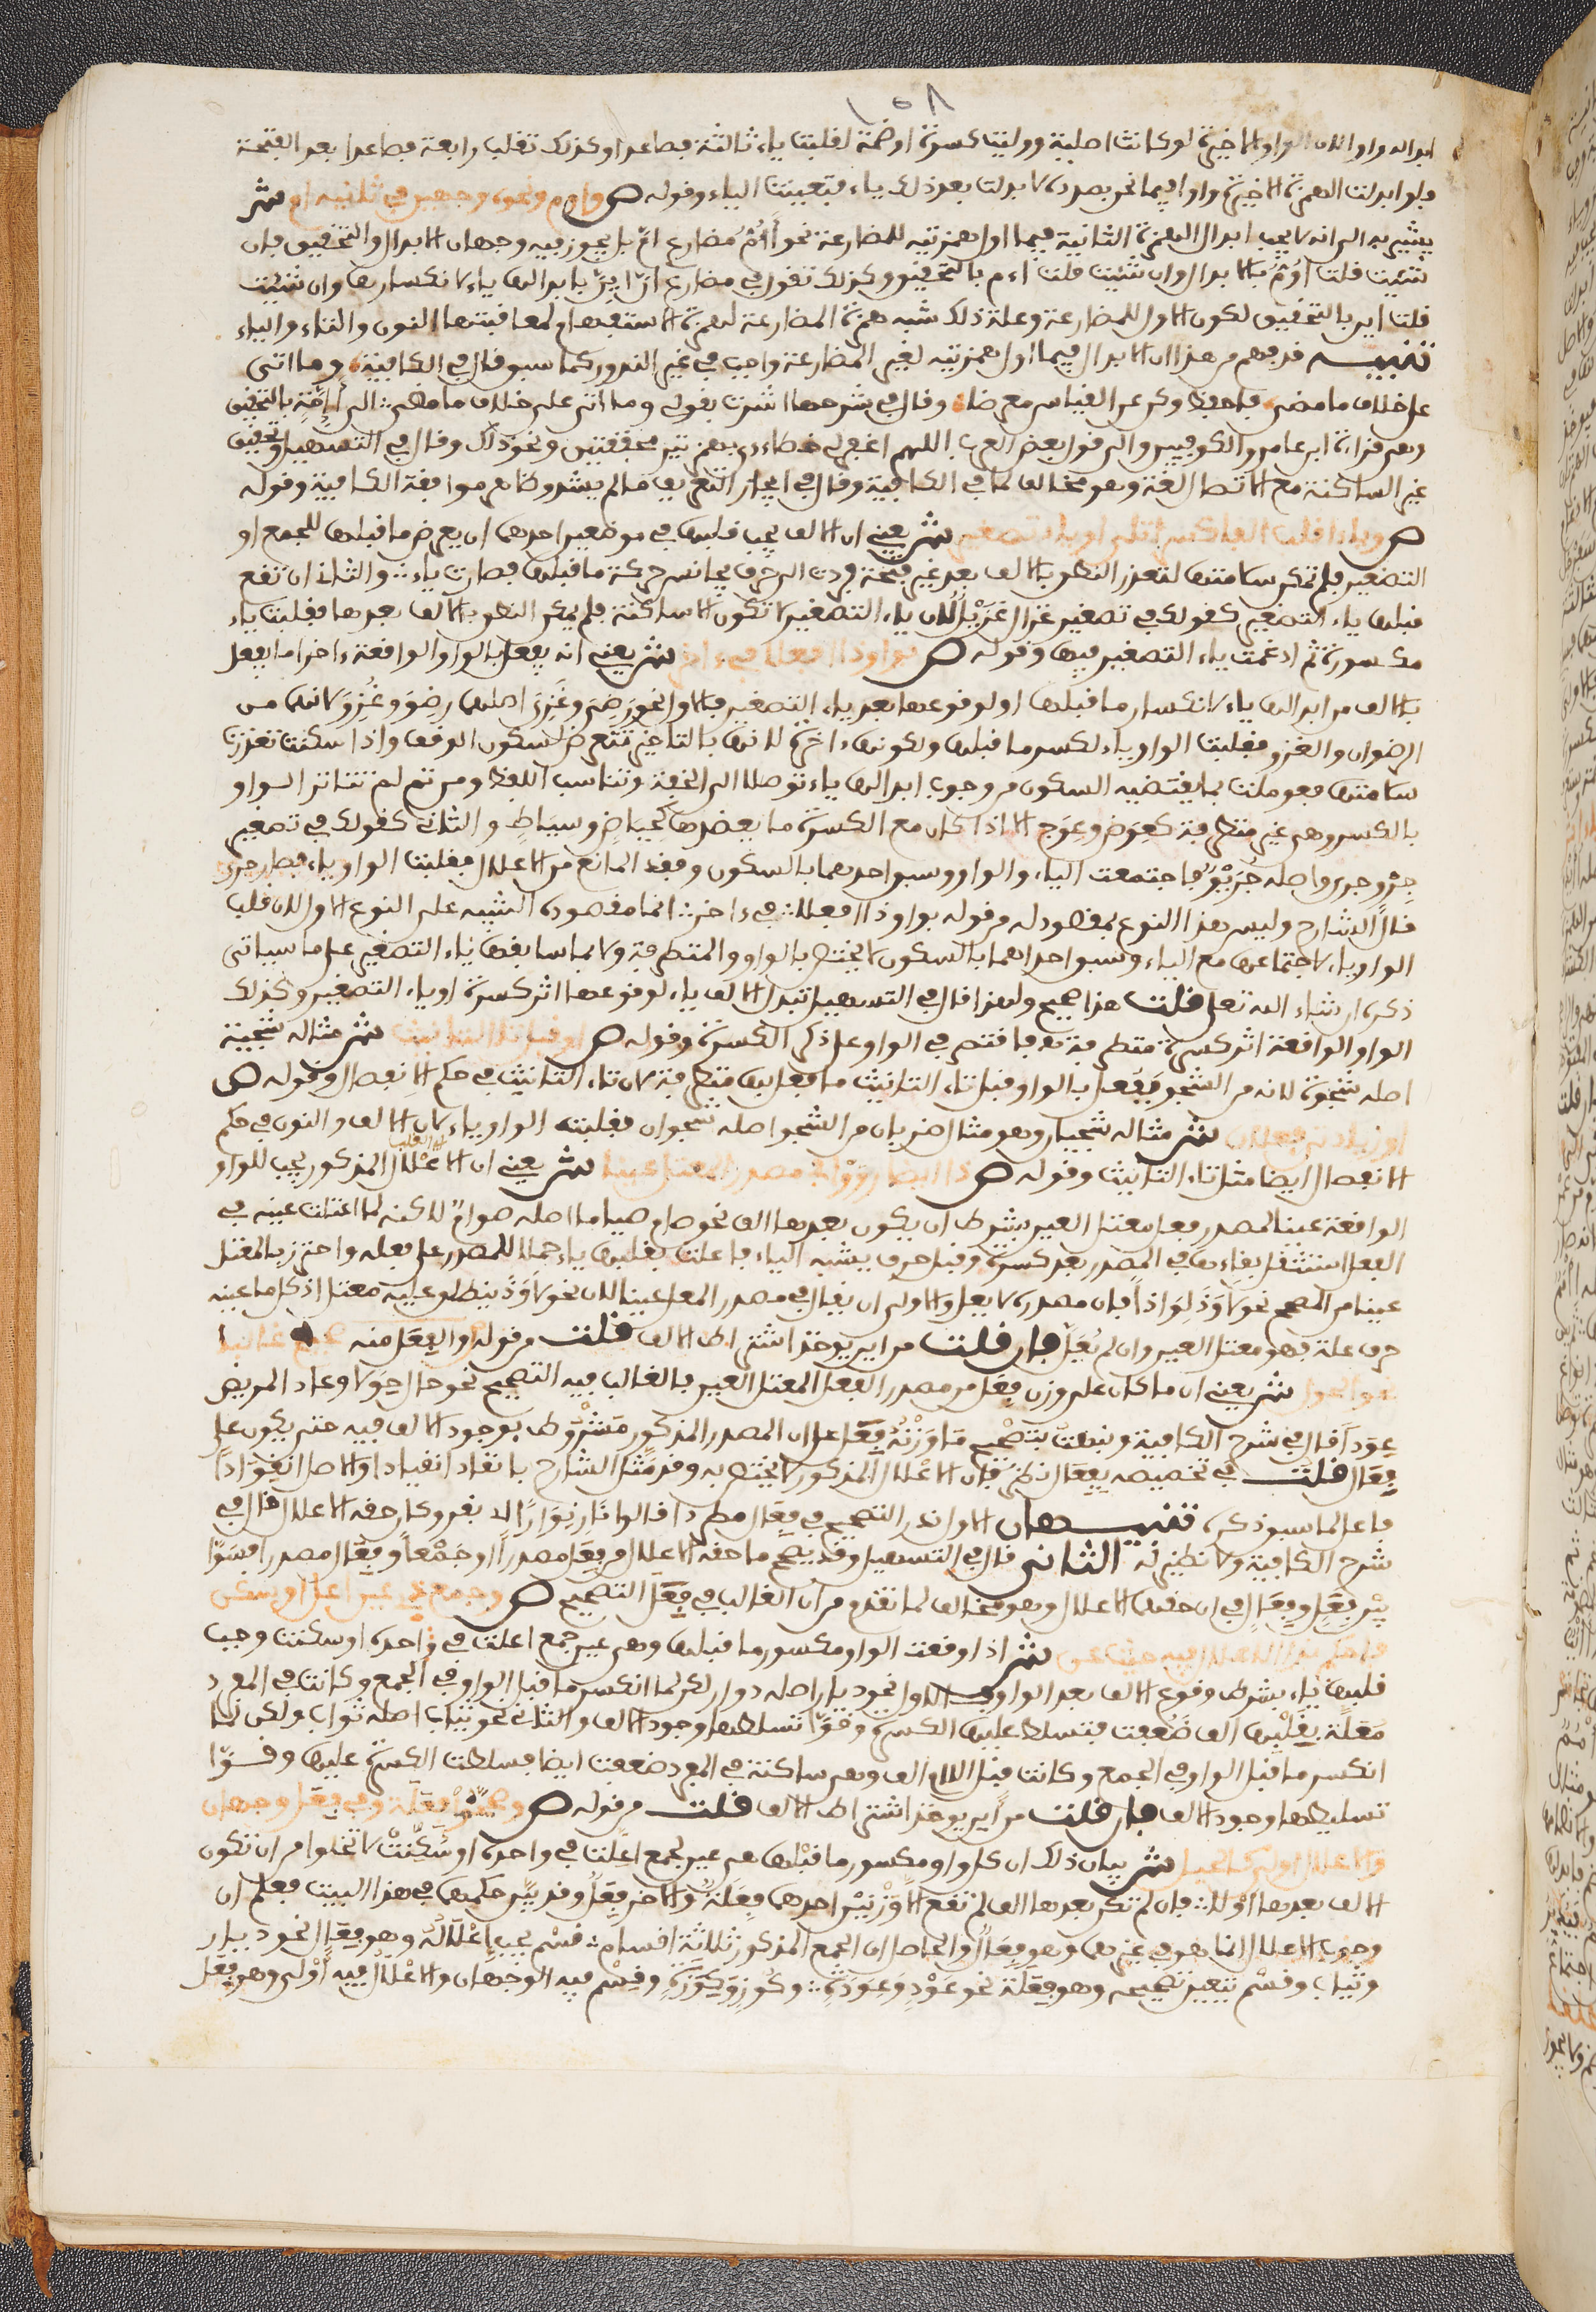 ١٥٨
ابداله واوا لان الواو الاخيرة لو كانت اصلية ووليت كسرة او ضمة لقلبت ياء ثالثة فصاعدا وكذلك تقلب رابعة فصاعدا بعد الفتحة
فلو ابدلت الهمزة الاخيرة واوا فيما نحن بصدده لابدلت بعد ذلك ياء فتعينت الياء وقوله ص واوم ونحوه وجهين في ثانيه ام ش
يشير به الى انه لا يجب ابدال الهمزة الثانية فيما اول همزتيه للمضارعة نحو أَوُمُّ مضارع امّ بل يجوز فيه وجهان الابدال والتحقيق فان
شئت قلت أَوُمُّ بالابدال وان شئت قلت أءم بالتحقيق وكذلك تقول في مضارع انّ اينّ بابدالها ياء لانكسارها وان شئت
قلت اين بالتحقيق لكون الاول للمضارعة وعلة ذلك شبه همزة المضارعة لهمزة الاستفهام لمعاقبتها النون والتاء والياء
تنبيه قد فهم من هذا ان الابدال فيما اول همزتيه لغير المضارعة واجب في غير الندور كما سبق قال في الكافية وما اتى
على خلاف ما مضى فاحفظ وكن عن القياس معرضا وقال في شرحها اشرت بقولي وما اتى على خلاف ما مضى الى أئمة بالتحقيق
وهي قراءة ابن عامر والكوفيين والى قول بعض العرب اللهم اغفر لي خطاءي بهمزتين محققتين ونحو ذلك وقال في التسهيل وتحقيق
غير الساكنة مع الاتصال لغة وهو مخالف لما في الكافية وقال في ايجاز التعريف ما لم يشذ وظاهره موافقة الكافية وقوله
ص وياء اقلب الفا كسرا تلا او ياء تصغير ش يعني ان الالف يجب قلبها في موضعين احدهما ان يعرض ما قبلها للجمع او
التصغير فلم تمكن سلامتها لتعذر النطق بالالف بعد غير فتحة فردت الى حرف يجانس حركة ما قبلها فصارت ياء والثاني ان تقع
قبلها ياء التصغير كقولك في تصغير غزال غُزَيِّل لان ياء التصغير لا تكون الا ساكنة فلم يمكن النطق بالالف بعدها فقلبت ياء
مكسورة ثم ادغمت ياء التصغير فيها وقوله ص بواو ذا افعلا في ءاخر ش يعني انه يفعل بالواو الواقعة ءاخرا ما يفعل
بالالف من ابدالها ياء لانكسار ما قبلها او لوقوعها بعد ياء التصغير فالاول نحو رَضِيَ وغُزِيَ اصلها رضِوَ وغُزِوَ لانهما من
الرضوان والغزو فقلبت الواو ياء لكسر ما قبلها ولكونها ءاخرة لانها بالتاخير تتعرض لسكون الوقف واذا سكنت تعذرت
سلامتها فعوملت بما يقتضيه السكون من وجوب ابدالها ياء توصلا الى الخفة وتناسب اللفظ ومن ثم لم تتاثر الواو
بالكسر وهي غير متطرفة كعِوَض وعِوَج الا اذا كان مع الكسرة ما يعضدها كحِياض وسِيَاط والثاني كقولك في تصغير
جِرْوٍ جري واصله جُرَيْوٌ فاجتمعت الياء والواو وسبق احدهما بالسكون وفقد المانع من الاعلال فقلبت الواو ياء فصار جري
قال الشارح وليس هذا النوع بمقصود له من قوله بواو ذا افعلا في ءاخر انما مقصوده التنبيه على النوع الاول لان قلب
الواو ياء لاجتماعها مع الياء وسبق احداهما بالسكون لا يختص بالواو المتطرفة ولا بما سابقها ياء التصغير على ما سياتي
ذكره ان شاء الله تعلى قلت هذا صحيح ولهذا قال في التسهيل تبدل الالف ياء لوقوعها اثر كسرة او ياء التصغير وكذلك
الواو الواقعة اثر كسرة متطرفة فاقتصر في الواو على ذكر الكسرة وقوله ص او قبل تا التانيث ش مثاله شجية
اصله شجوة لانه من الشجو ففعل بالواو قبل تاء التانيث ما فعل بها متطرفة لان تاء التانيث في حكم الانفصال وقوله ص
او زيادتي فعلان ش مثاله شجيان وهو مثال ضربان من الشجو اصله شجوان فقلبت الواو ياء لان الالف والنون في حكم
الانفصال ايضا مثل تاء التانيث وقوله ص ذا ايضا رووا في مصدر المعتل عينا ش يعني ان الاعلال المذكور يجب للواو
الواقعة عينا لمصدر فعل معتل العين بشرط ان يكون بعدها الف نحو صام صياما اصله صواما لاكنه لما اعتلت عينه في
الفعل استثقل بقاءها في المصدر بعد كسرة وقبل حرف يشبه الياء فاعلت بقلبها ياء حملا للمصدر على فعله واحترز بالمعتل
عينا من الصحيح نحو لاوَذَ لِوَاذاً فان مصدره لا يعل والاولى ان يقال في مصدر المعل عينا لان نحو لاوَذَ ينطلق عليه معتل اذ كل ما عينه
حرف علة فهو معتل العين وان لم يُعَلّ فان قلت من اين يوخذ اشتراط الالف قلت من قوله والفِعَل منه صحيح غالبا
نحو الحول ش يعني ان ما كان على وزن فِعَل من مصدر الفعل المعتل العين فالغالب فيه التصحيح نحو حال حِوَلا وعاد المريض
عِوَداً قال في شرح الكافية ونبهت بتصحيح مَا وَزْنُهُ فِعَل على ان المصدر المذكور مَشْرُوط بوجود الالف فيه حتى يكون على
فِعَال قلت في تخصيصه بفِعَال نظر فان الاعلال المذكور لا يختص به وقد مثل الشارح بانقاد انقيادا والاصل انقِوَاداً
فاعل لما سبق ذكره تنبيهان الاول ندر التصحيح في فِعَال مصدرا قالوا نَارَ نِوَاراً اي نفر وكان حقه الاعلال قال في
شرح الكافية ولا نظير له الثاني قال في التسهيل وقد يصح ما حقه الاعلال من فِعَل مصدراً او جَمْعاً وفِعَال مصدرا فسَوَّا
بين فِعَل وفِعَال في ان حقهما الاعلال وهو مخالف لما تقدم من ان الغالب في فِعَل التصحيح ص وجمع ذي عين اعل او سكن
فاحكم بذا الاعلال فيه حيث عن ش اذا وقعت الواو مكسورا ما قبلها وهي عين جمع اعلت في واحده او سكنت وجب
قلبها ياء بشرط وقوع الالف بعد الواو الاول نحو ديار اصله دوار لكن لما انكسر ما قبل الواو في الجمع وكانت في المفرد
مُعَلَّة بقَلْبِهَا الفا ضَعُفت فتسلط عليها الكسرة وقوّا تسلطها وجود الالف والثاني نحو ثياب اصله ثواب ولكن لما
انكسر ما قبل الواو في الجمع وكانت قبل الالف وهي ساكنة في المفرد ضعفت ايضا فسلطت الكسرة عليها وقوّا
تسليطها وجود الالف فان قلت من اين يوخذ اشتراط الالف قلت من قوله ص وصححوا فِعَلَة وفي فعل وجهان
والاعلال اولى كالحيل ش بيان ذلك ان كل واو مكسور ما قبْلها هي عين لجمع اعِلّت في واحده او سُكِّنَتْ لا تخلوا من ان تكون
الالف بعدها اولا فان لم تكن بعدها الف لم تقع الا في وَزْنَيْن احدهما فِعَلَةٌ والاخر فِعَل وقد بيّن حكمهما في هذا البيت فعلم ان
وجوب الاعلال انما هو في غيرهما وهو فِعَال والحاصل ان الجمع المذكور ثلاثة اقسام قسْم يجب اِعْلَالُهُ وهو فِعَال نحو ديار
وثياب وقسْم يتعين تصحيحه وهو فِعَلَة نحو عَوْدٍ وعِوَدَةٍ وكُوزٍ وكِوَزَةٍ وقِسْم فيه الوجهان والاعْلال فيه أَوْلى وهو فِعَل